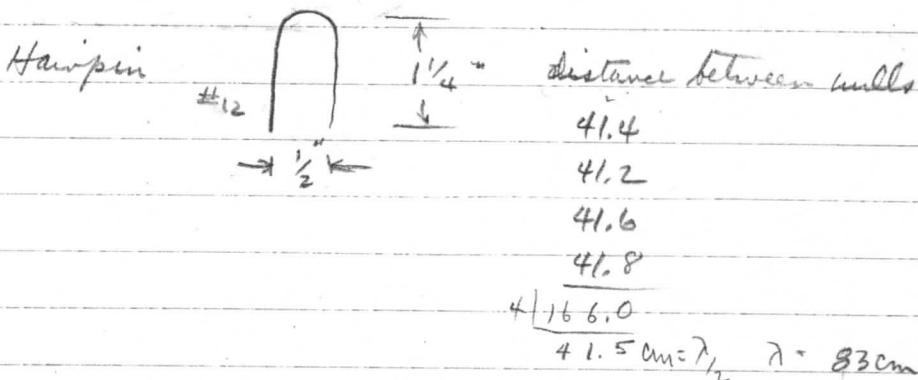 Hairpin
#12
1 1/4 "
1/2 "
distance between nulls
41.4
41.2
41.6
41.8
4|166.0
41.5 cm = λ/2 λ = 83 cm